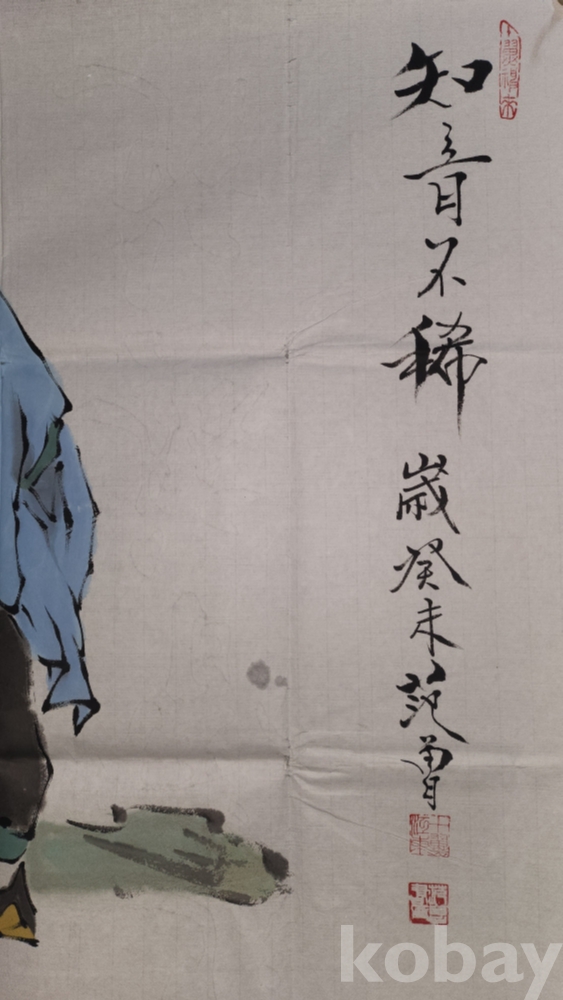 知音不稀 歲癸未范曾
kobay